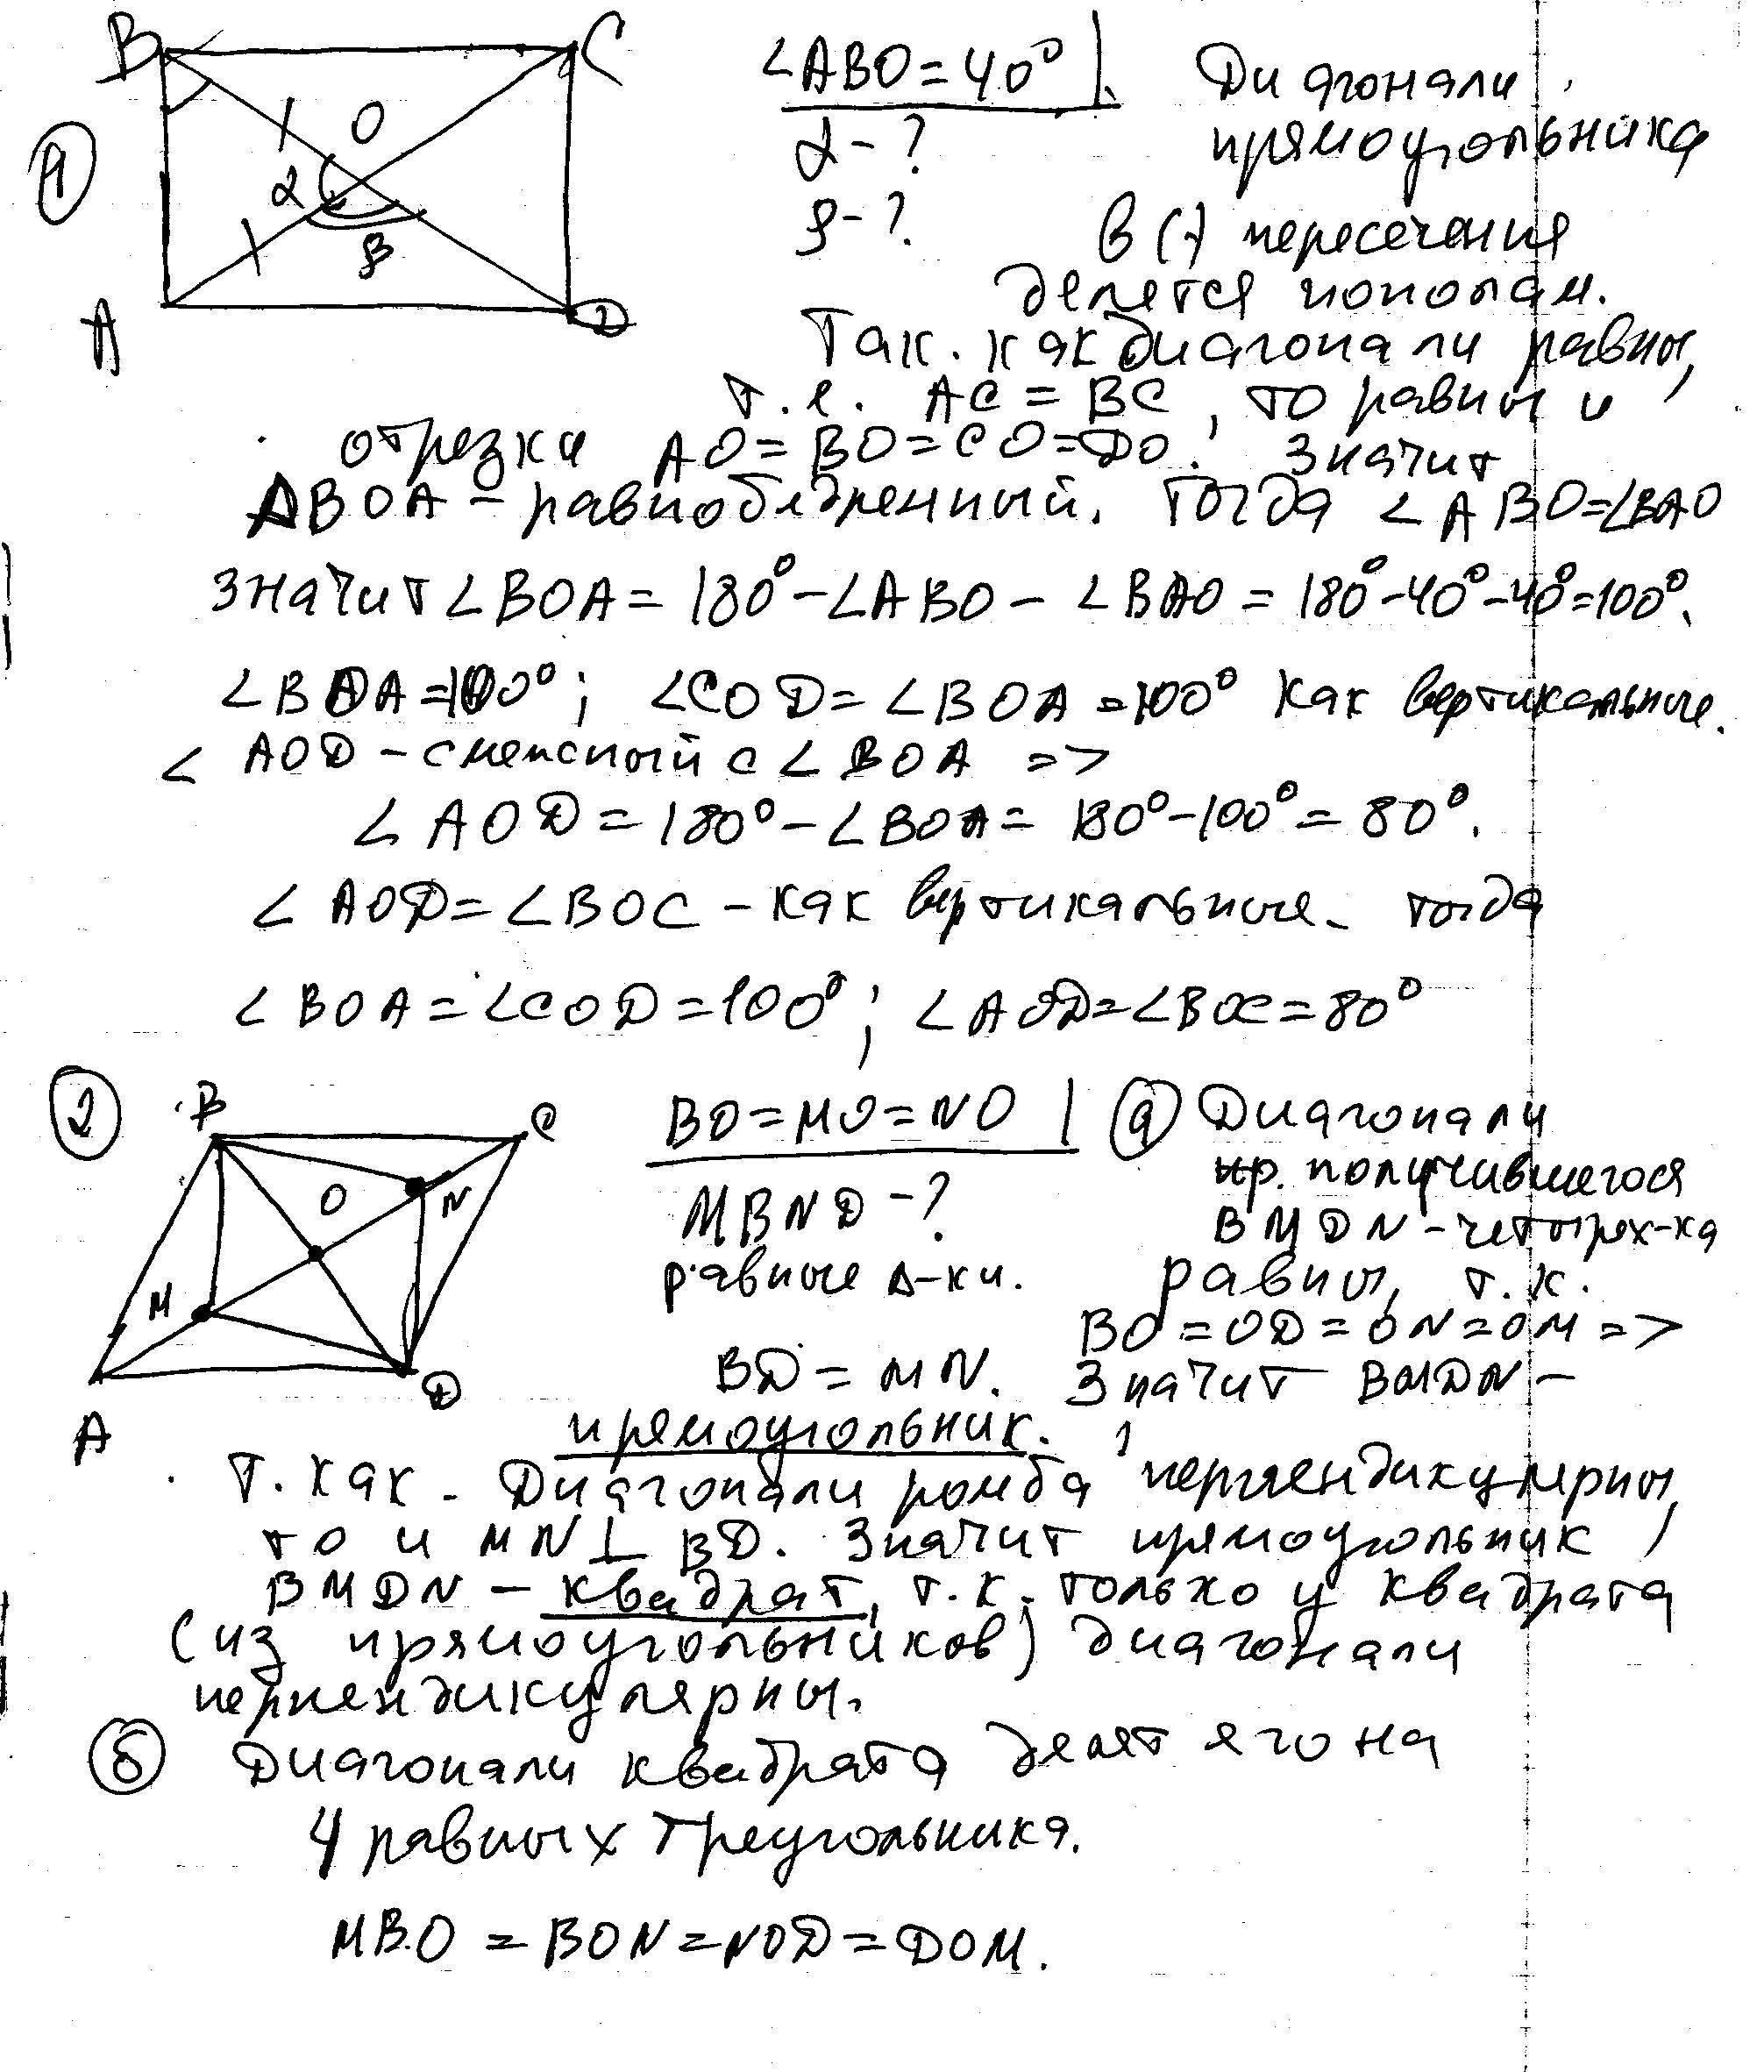 B C
∠ABO=40° Диагонали
① O α-? прямоугольника
α β β-? в (·) пересечения
A D делятся пополам.
Так. как диагонали равны,
т.е. AC = BC, то равны и
отрезки AO=BO=CO=DO. Значит
ΔBOA – равнобедренный. Тогда ∠ABO=∠BAO
значит ∠BOA = 180° – ∠ABO – ∠BAO = 180°-40°-40°=100°.
∠BOA=100°; ∠COD=∠BOA=100° как вертикальные.
∠ AOD – смежный с ∠BOA =>
∠AOD = 180° – ∠BOA = 180°-100° = 80°.
∠AOD=∠BOC – как вертикальные. тогда
∠BOA=∠COD=100°; ∠AOD=∠BOC=80°
② B C BO=MO=NO ⓐ Диагонали
пр. получившегося
O N MBND-? BMDN – четырех-ка
M равные Δ-ки. равны, т.к.
BO=OD=ON=OM =>
D BD = MN. Значит BMDN –
A прямоугольник.
Т. как. Диагонали ромба перпендикулярны,
то и MN⊥BD. Значит прямоугольник
BMDN – квадрат, т.к. только у квадрата
(из прямоугольников) диагонали
перпендикулярны.
ⓑ Диагонали квадрата делят яго на
4 равных треугольника.
MBO = BON = NOD = DOM.